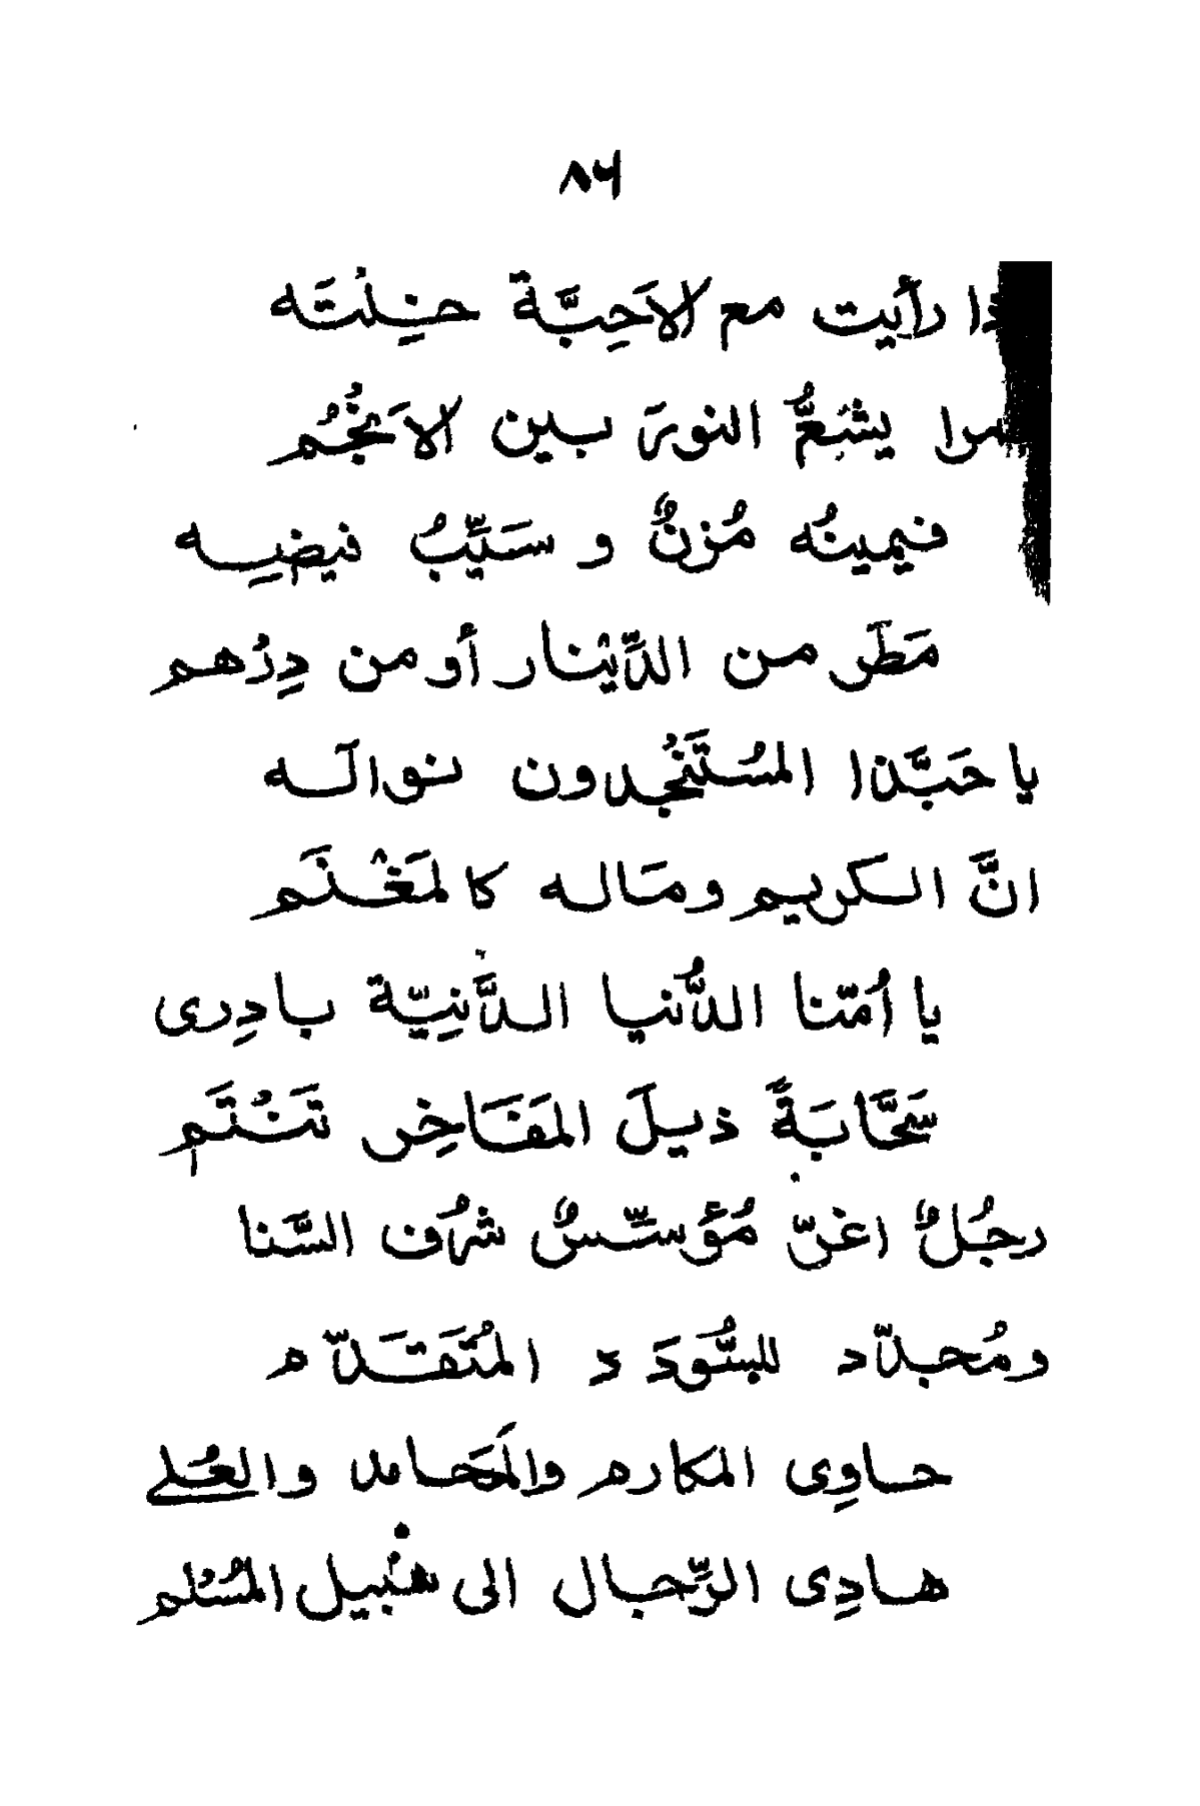 ٨٦
رأيت مع الاَحِبَّة خِلْتَه
يشعُّ النورَ بين الاَنجُم
فيمينُه مُزنٌ و سَيِّبُ فيضِه
مَطَر من الدِّيْنار أو من دِرْهم
يا حَبَّذا المسْتَنْجدون نوالَه
انَّ الكريم ومَاله كالمَغْنَم
يا اُمّنا الدُّنيا الدَّنِيّة بادِرى
سَحَّابَةً ذيلَ المَفَاخِر تَنْتَم
رجُلٌ اغرّ مُؤَسّسٌ شرُف السَّنا
ومُجدّد للسُّوَدَد المُتَقَدّم
حاوِى المكارم والمَحَامد والعُلے
هادِى الرِّجال الى سُبيل المُسْلم